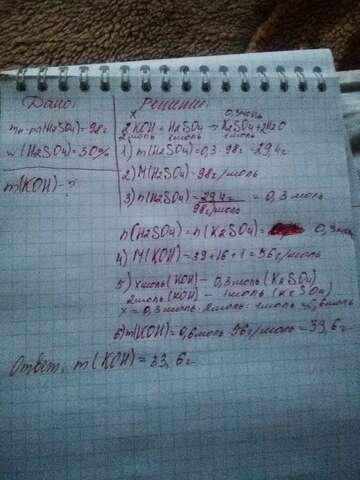 Дано:
mр-ра(H2SO4)=98г
w(H2SO4)=30%
m(KOH)-?
Решение
x 0,3моль
2KOH+H2SO4→K2SO4+2H2O
2моль 1моль
1) m(H2SO4)=0,3·98г=29,4г
2) M(H2SO4)-98г/моль
3) n(H2SO4)=29,4г = 0,3 моль
98г/моль
n(H2SO4)=n(K2SO4)= 0,3моль
4) M(KOH)=39+16+1=56г/моль
5) xмоль(KOH)-0,3моль(K2SO4)
2моль(KOH)-1моль(K2SO4)
x=0,3моль·2моль:1моль=0,6моль
6) m(KOH)=0,6моль·56г/моль=33,6г
Ответ: m(KOH)=33,6г